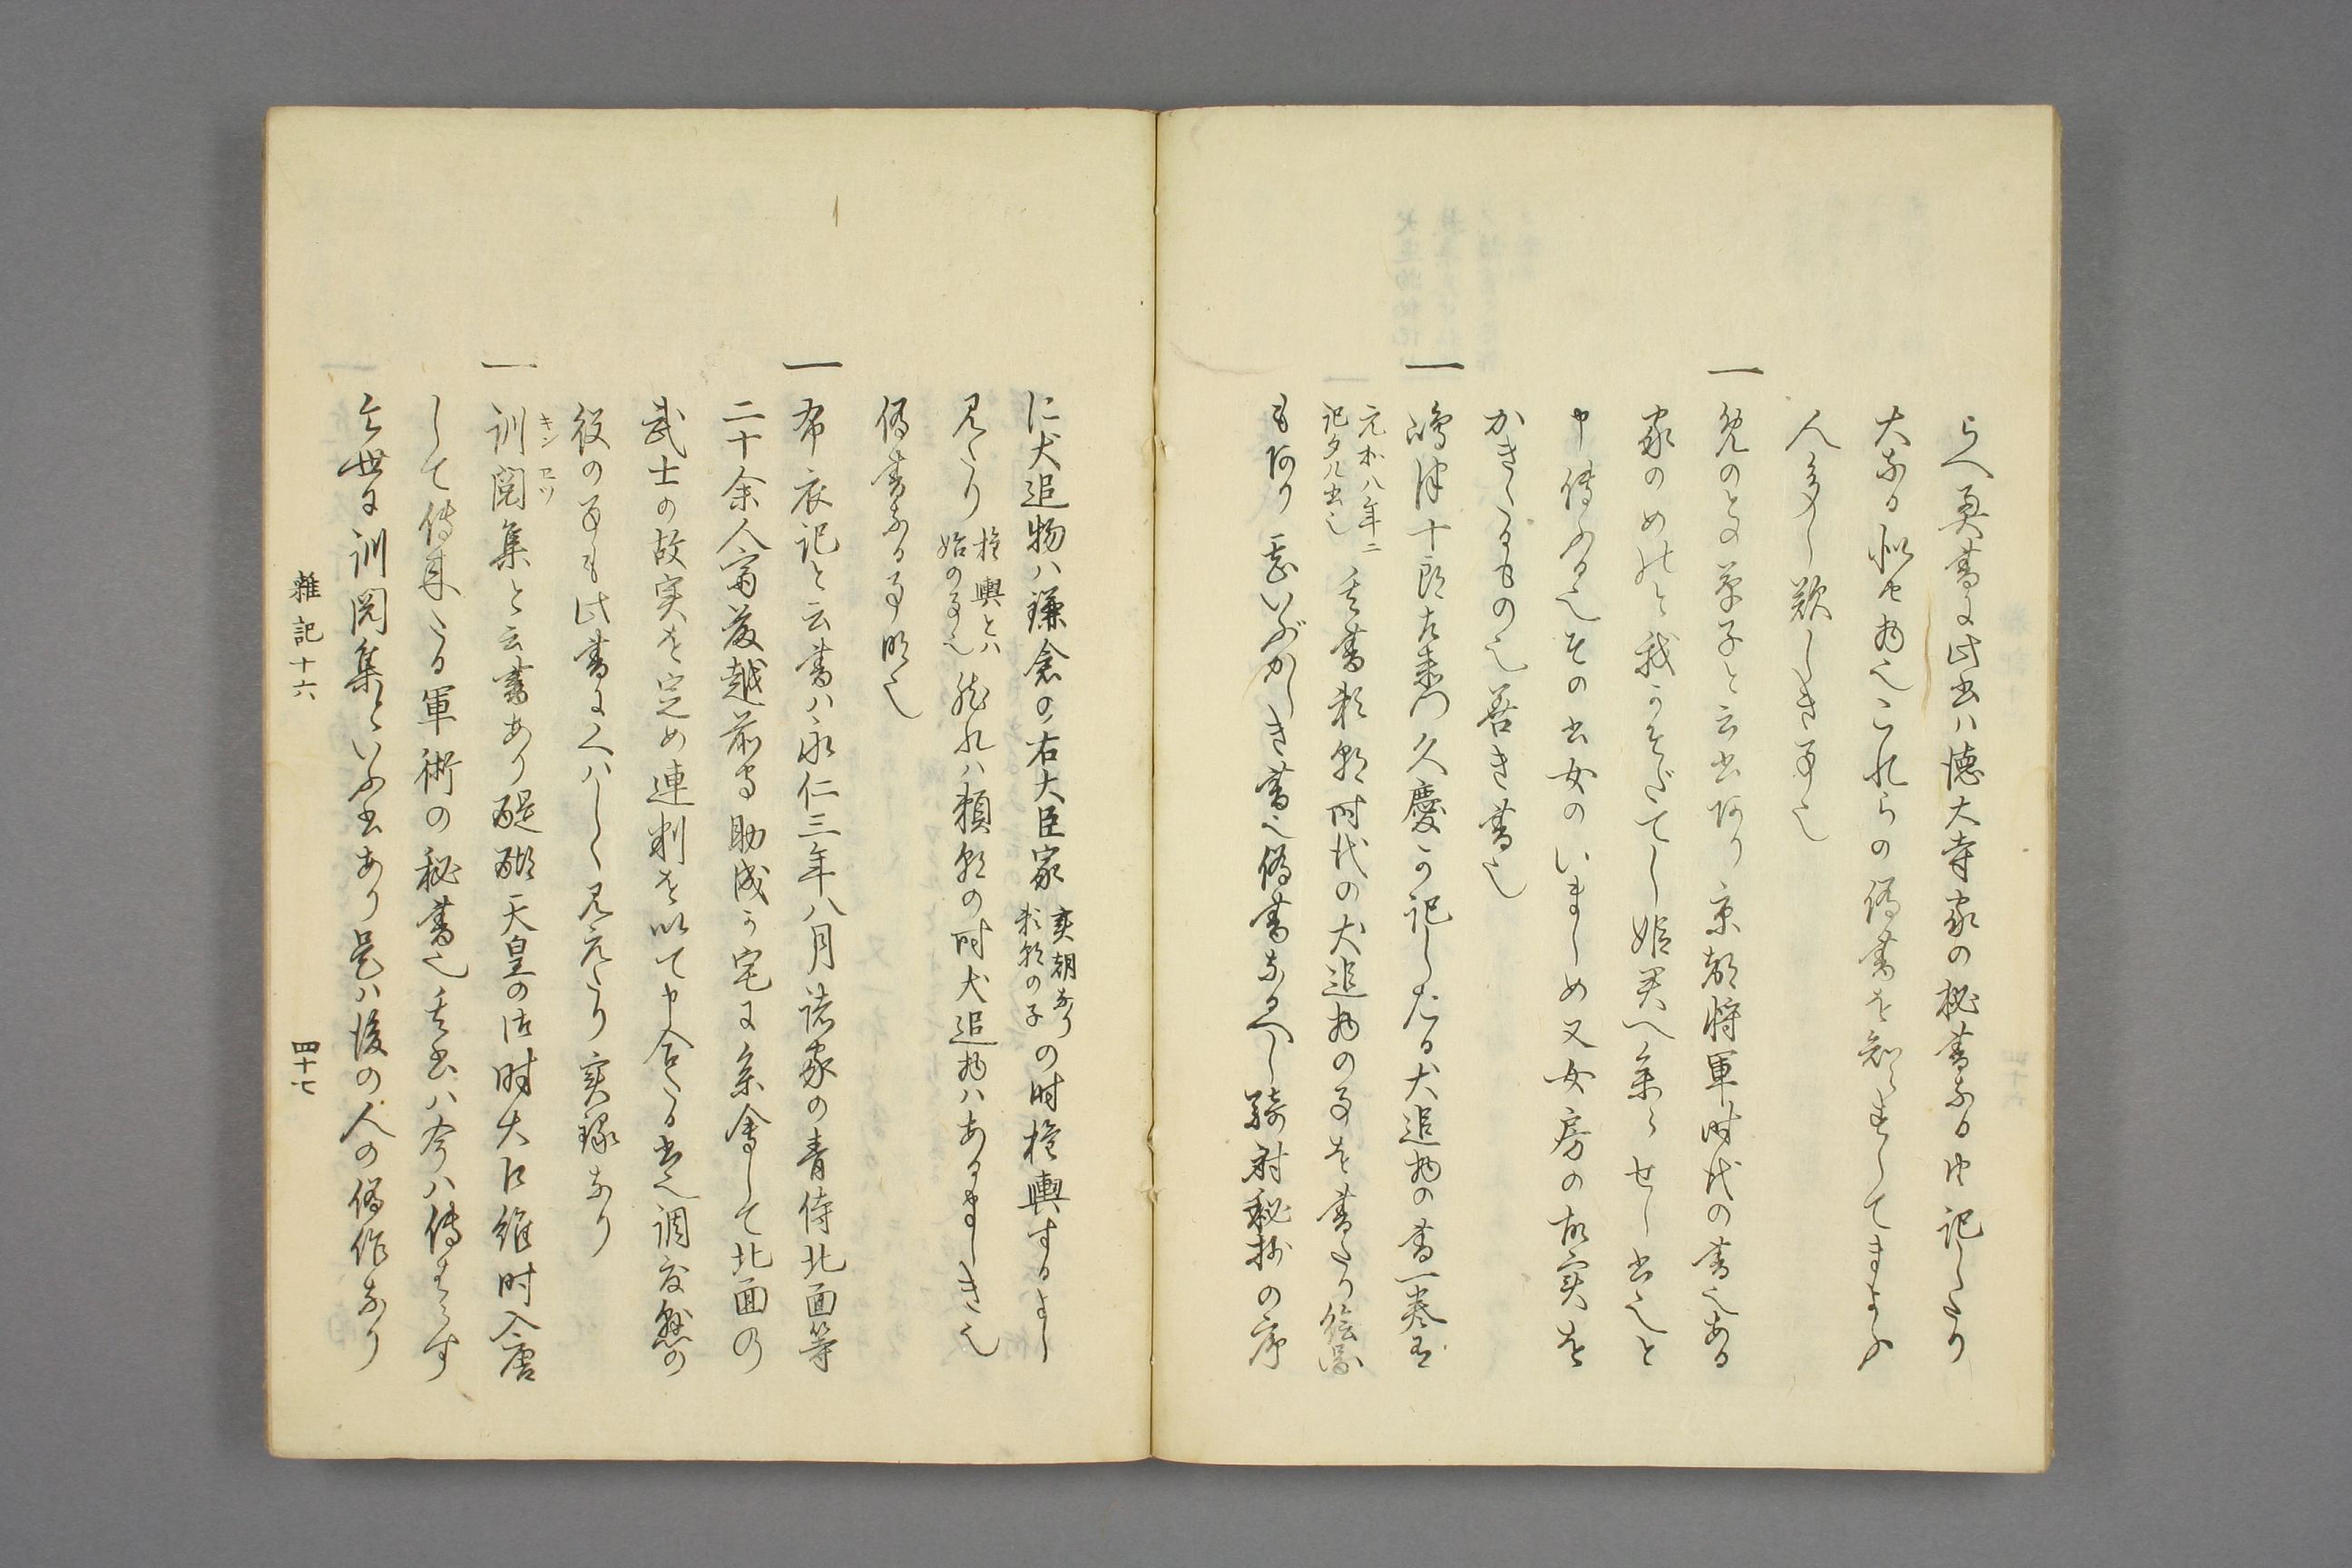 らへ奥書に此書ハ徳大寺家の秘書なる由記したり
大なる似せ物也これらの偽書を知らすしてまよふ
人多し歎しき事也
一 めのとの草子と云書あり京都将軍時代の書也ある
家のめのと我かそだてし姫君へ参らせし書也と
申傳ふる也その書女のいましめ又女房の故実を
かきたるもの也善き書也
一 嶋津十郎左衛門久慶か記したる犬追物の書一巻
元和八年ニ記タル書也 其書頼朝時代の犬追物の事を書たり絵図
もあり甚いぶかしき書也偽書なるへし騎射秘抄の序
に犬追物ハ鎌倉の右大臣家 実朝なり頼朝の子 の時権輿するよし
見えたり 権輿とハ始の事也 然れハ頼朝の時犬追物ハあるましき也
偽書なる事明也
一 布衣記と云書ハ永仁三年八月諸家の青侍北面等
二十余人富藤越前守助成か宅に参會して北面の
武士の故実を定め連判を以て申合たる書也調度懸の
役の事も此書にくハしく見えたり実録なり
一 訓閲集と云書あり醍醐天皇の御時大江維時入唐
キンエツ
して傳来たる軍術の秘書也其書ハ今ハ傳ハらす
今世に訓閲集といふ書あり是ハ後の人の偽作なり
雜記十六
四十七